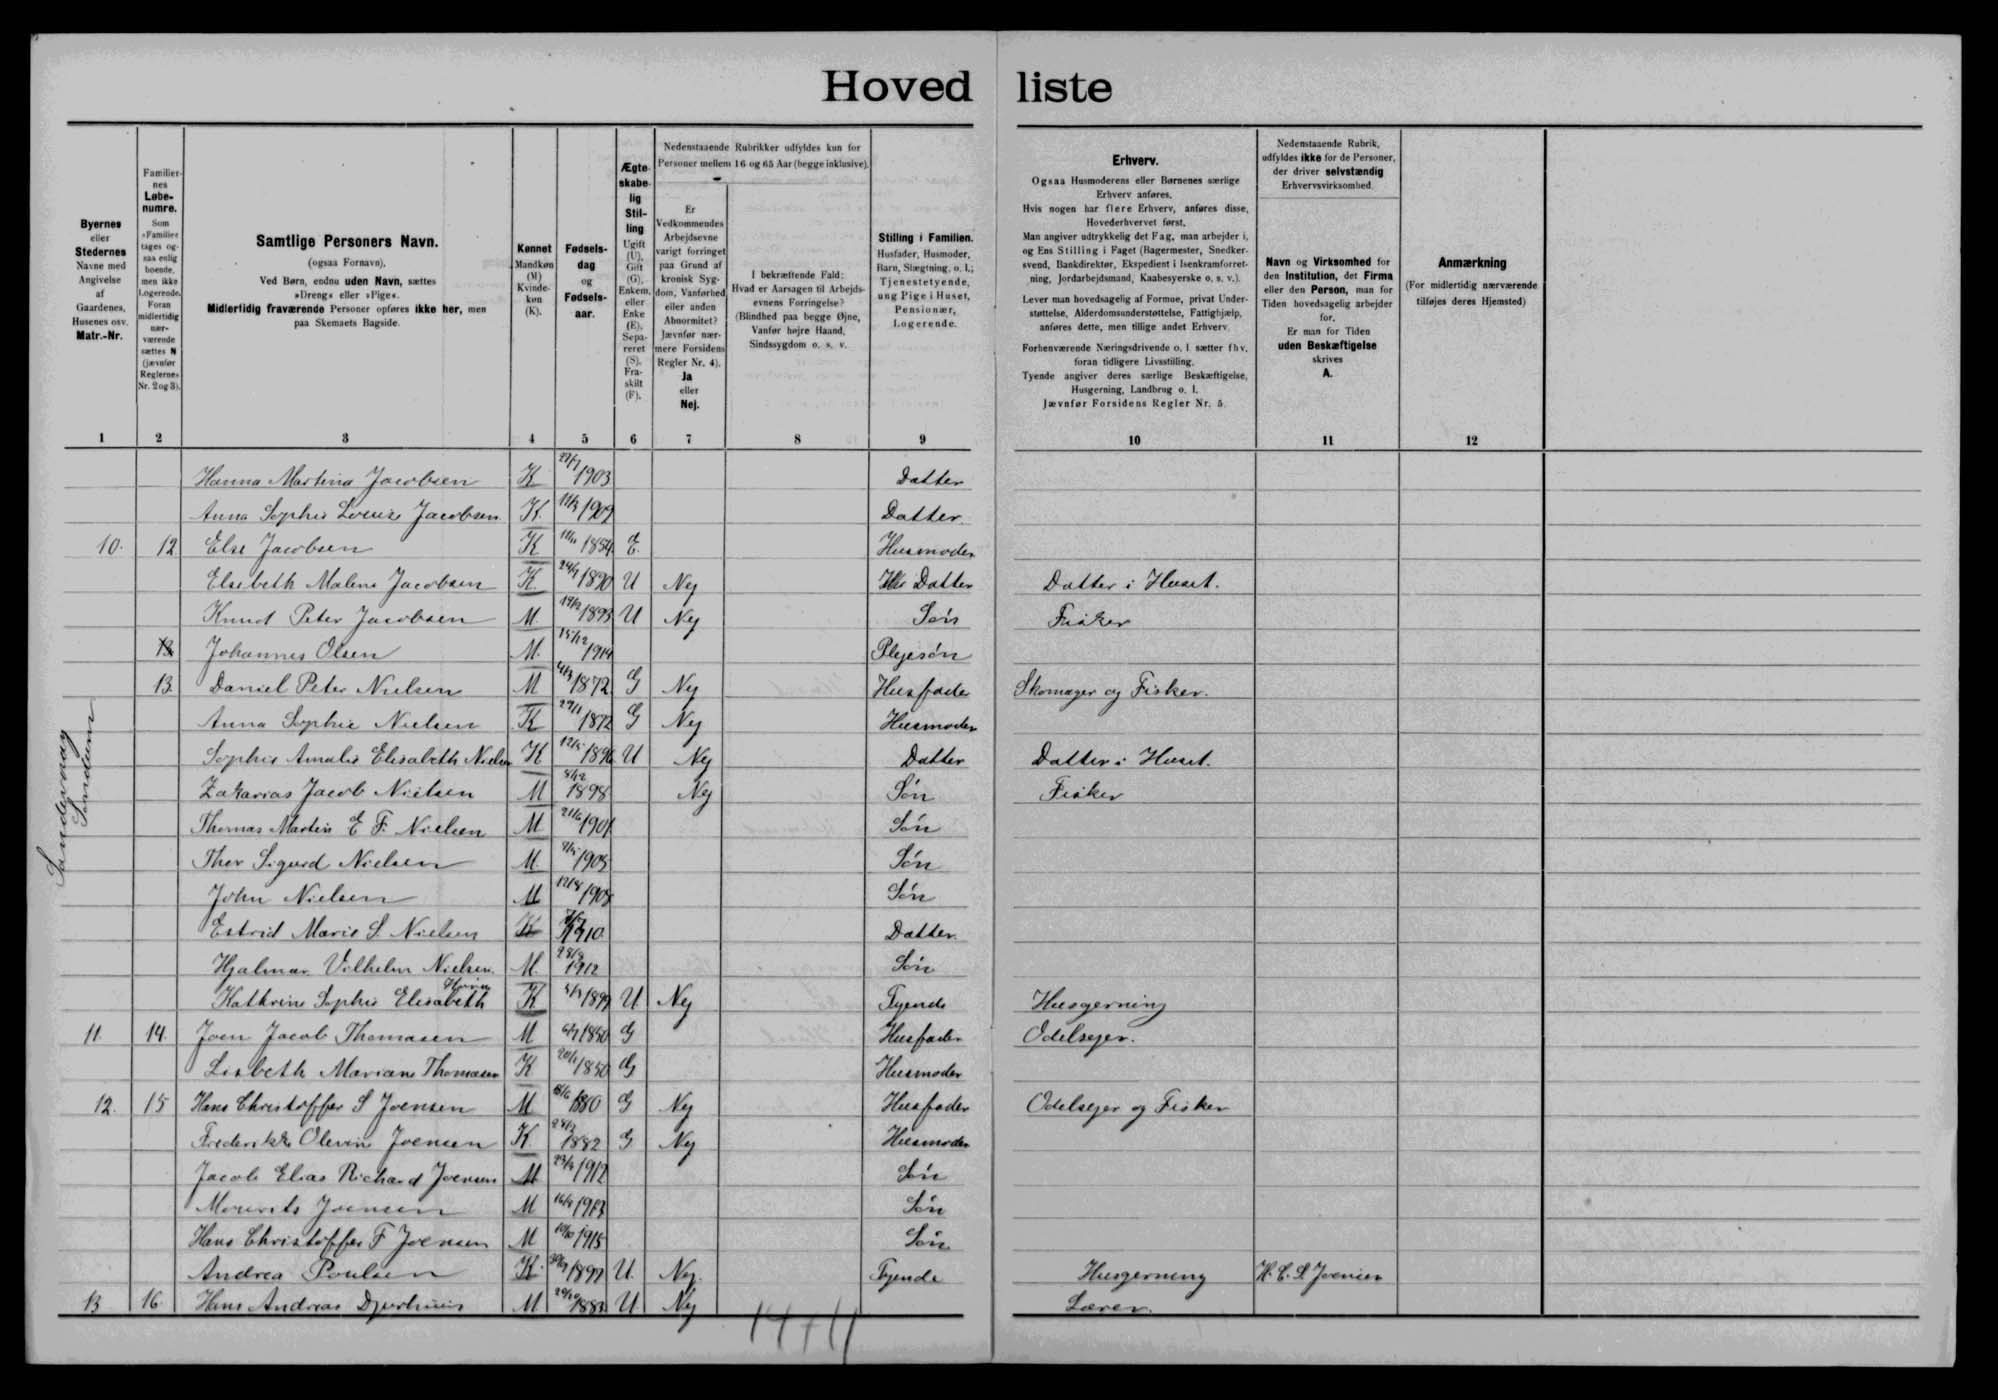 Hoved liste
Byernes eller Stedernes Navne med Angivelse af Gaardenes, Husenes osv. Matr.-Nr.
Familiernes Løbenumre. Som »Familie« tages ogsaa enlig boende, men ikke Logerende. Foran midlertidig nærværende sættes N (jævnfør Reglernes Nr. 2 og 3).
Samtlige Personers Navn. (ogsaa Fornavn). Ved Børn, endnu uden Navn, sættes »Dreng« eller »Pige«. Midlertidig fraværende Personer opføres ikke her, men paa Skemaets Bagside.
Kønnet Mandkøn (M) Kvindekøn (K).
Fødselsdag og Fødselsaar.
Ægteskabelig Stilling Ugift (U), Gift (G), Enkem. eller Enke (E), Separeret (S), Fraskilt (F).
Nedenstaaende Rubrikker udfyldes kun for Personer mellem 16 og 65 Aar (begge inklusive).
Er Vedkommendes Arbejdsevne varigt forringet paa Grund af kronisk Sygdom, Vanførhed eller anden Abnormitet? Jævnfør nærmere Forsidens Regler Nr. 4). Ja eller Nej.
I bekræftende Fald: Hvad er Aarsagen til Arbejdsevnens Forringelse? (Blindhed paa begge Øjne, Vanfør højre Haand, Sindssygdom o. s. v.
Stilling i Familien. Husfader, Husmoder, Barn, Slægtning, o. l.; Tjenestetyende, ung Pige i Huset, Pensionær, Logerende.
Erhverv. Ogsaa Husmoderens eller Børnenes særlige Erhverv anføres. Hvis nogen har flere Erhverv, anføres disse, Hovederhvervet først. Man angiver udtrykkelig det Fag, man arbejder i, og Ens Stilling i Faget (Bagermester, Snedkersvend, Bankdirektør, Ekspedient i Isenkramforretning, Jordarbejdsmand, Kaabesyerske o. s. v.). Lever man hovedsagelig af Formue, privat Understøttelse, Alderdomsunderstøttelse, Fattighjælp, anføres dette, men tillige andet Erhverv. Forhenværende Næringsdrivende o. l. sætter fhv. foran tidligere Livsstilling. Tyende angiver deres særlige Beskæftigelse, Husgerning, Landbrug o. l. Jævnfør Forsidens Regler Nr. 5.
Nedenstaaende Rubrik, udfyldes ikke for de Personer, der driver selvstændig Erhvervsvirksomhed.
Navn og Virksomhed for den Institution, det Firma eller den Person, man for Tiden hovedsagelig arbejder for. Er man for Tiden uden Beskæftigelse skrives A.
Anmærkning (For midlertidig nærværende tilføjes deres Hjemsted)
1 2 3 4 5 6 7 8 9 10 11 12
Hanna Martina Jacobsen K 1903 Datter
Anna Sophie Louise Jacobsen K. 1909 Datter
10. 12 Else Jacobsen K 1854. E. Husmoder
Elsebeth Malene Jacobsen K. 1890 U Nej Datter Datter i Huset.
Knud Peter Jacobsen M. 1893 U Nej Søn Fisker
Johannes Olsen M. 15/12 1914 Plejesøn
13. Daniel Peter Nielsen M 1872. G Nej Husfader Skomager og Fisker.
Anna Sophie Nielsen K 1872 G Nej Husmoder
Sophie Amalie Elisabeth Nielsen K 1896 U Nej Datter Datter i Huset.
Zakarias Jacob Nielsen M 1898 Nej Søn Fisker
Thomas Martin E F. Nielsen M 1901 Søn
Thor Sigurd Nielsen M. 1905 Søn
John Nielsen M 1908 Søn
Estrid Marie S. Nielsen K Datter.
Hjalmar Vilhelm Nielsen. M. 1912 Søn
Kathrine Sophie Elisabeth K 1899 U. Nej Tyende Husgerning
Sandevaag Sondum
11. 14. Joen Jacob Thomasen M 1850 G Husfader Odelsejer.
Lisbeth Mariane Thomasen K 1850 G Husmoder
12. 15 Hans Christoffer S Joensen M 1880 G Nej Husfader Odelsejer og Fisker
Frederikke Olevine Joensen K. 1882 G Nej Husmoder
Jacob Elias Richard Joensen M 1912 Søn
Mourits Joensen M 1913 Søn
Hans Christoffer F Joensen M 1915 Søn
Andrea Poulsen K. 1899 U. Nej. Tyende Husgerning H. C. S. Joensen
13 16. Hans Andreas Djurhuus M 1883. U Nej Lærer.
14+11